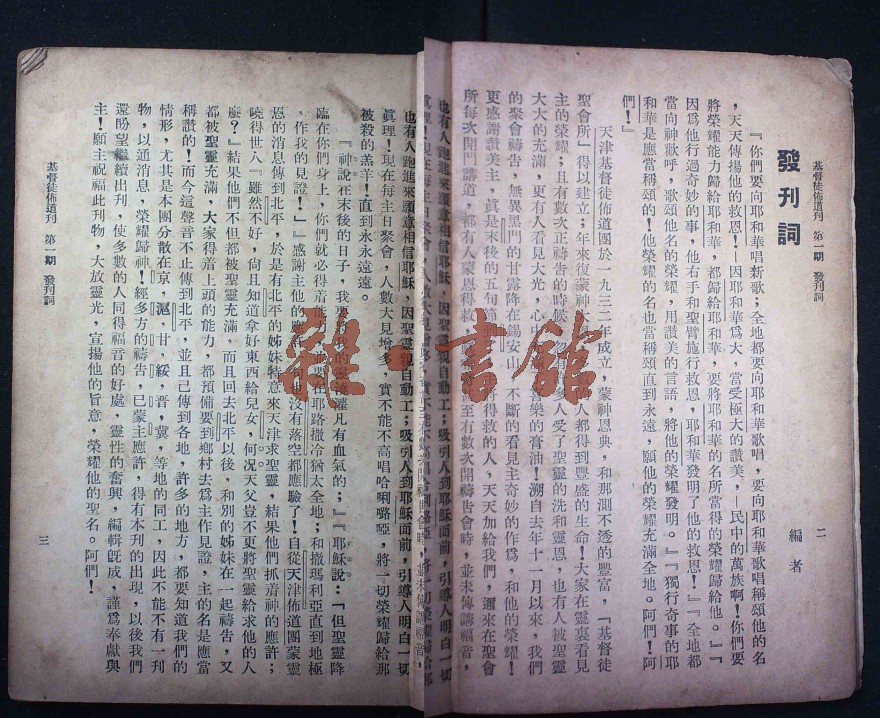 基督徒佈道刊　第一期　發刊詞
二
發刊詞
編者
『你們要向耶和華唱新歌；全地都要向耶和華歌唱，要向耶和華歌唱稱頌他的名
，天天傳揚他的救恩！—因耶和華爲大，當受極大的讚美，—民中的萬族啊！你們要
將榮耀能力歸給耶和華，都歸給耶和華，要將耶和華的名所當得的榮耀歸給他。』『
因爲他行過奇妙的事，他右手和聖臂施行救恩，耶和華發明了他的救恩！』『全地都
當向神歡呼，歌頌他名的榮耀，用讚美的言語，將他的榮耀發明。』『獨行奇事的耶
和華是應當稱頌的！他榮耀的名也當稱頌直到永遠，願他的榮耀充滿全地。阿們！阿
們！』
天津基督徒佈道團於一九三二年成立，蒙神恩典，和那測不透的豐富，「基督徒
聖會所」得以建立；年來復蒙神大人都得到豐盛的生命！大家在靈裏看見
主的榮耀；且有數次正禱告的時候，人受了聖靈的洗和靈恩，也有人被聖靈
大大的充滿，更有人看見大光，心中喜樂的膏油！溯自去年十一月以來，我們
的聚會禱告，無異黑門的甘露降在錫安山，不斷的看見主奇妙的作爲，和他的榮耀！
更感謝讚美主，眞是末後的五旬節將得救的人，天天加給我們，邇來在聖會
所每次開門講道，都有人蒙恩得救至有數次開禱告會時，並未傳講福音，
也有人跑進來願意相信耶穌，因聖靈親自動工；吸引人到耶穌面前，引導人明白一切
眞理！現在每主日聚會，人數大見增多，實不能不高唱哈唎路啞，將一切榮耀歸給那
被殺的羔羊！直到永永遠遠。
『神說在末後的日子，我要將我的靈澆灌凡有血氣的；』『耶穌說：「但聖靈降
臨在你們身上，你們就必得着能並要在耶路撒冷猶太全地；和撒瑪利亞直到地極
，作我的見證！」』感謝主他的應許一句也沒有落空都應驗了！自從天津佈道團蒙靈
恩的消息傳到北平，於是有北平的姊妹特意來天津求聖靈，結果他們抓着神的應許；
曉得世人『雖然不好，尙且知道拿好東西給兒女，何况天父豈不更將聖靈給求他的人
麽？』結果他們不但都被聖靈充滿，而且回去北平以後，和別的姊妹在一起禱告，又
都被聖靈充滿，大家得着上頭的能力，都預備要到鄉村去爲主作見證，主的名是應當
稱讚的！而今這聲音不止傳到北平，並且已傳到各地，許多的地方，都要知道我們的
情形，尤其是本團分散在京，滬，甘，綏，晉，冀，等地的同工，因此不能不有一刊
物，以通消息，榮耀歸神！經多方的禱告，已蒙主應許，得有本刊的出現，以後我們
還盼望繼續出刊，使多數的人同得福音的好處，靈性的奮興，編輯旣成，謹爲奉獻與
主！願主祝福此刊物，大放靈光，宣揚他的旨意，榮耀他的聖名。阿們！
基督徒佈道刊　第一期　發刊詞
三
雜·書館